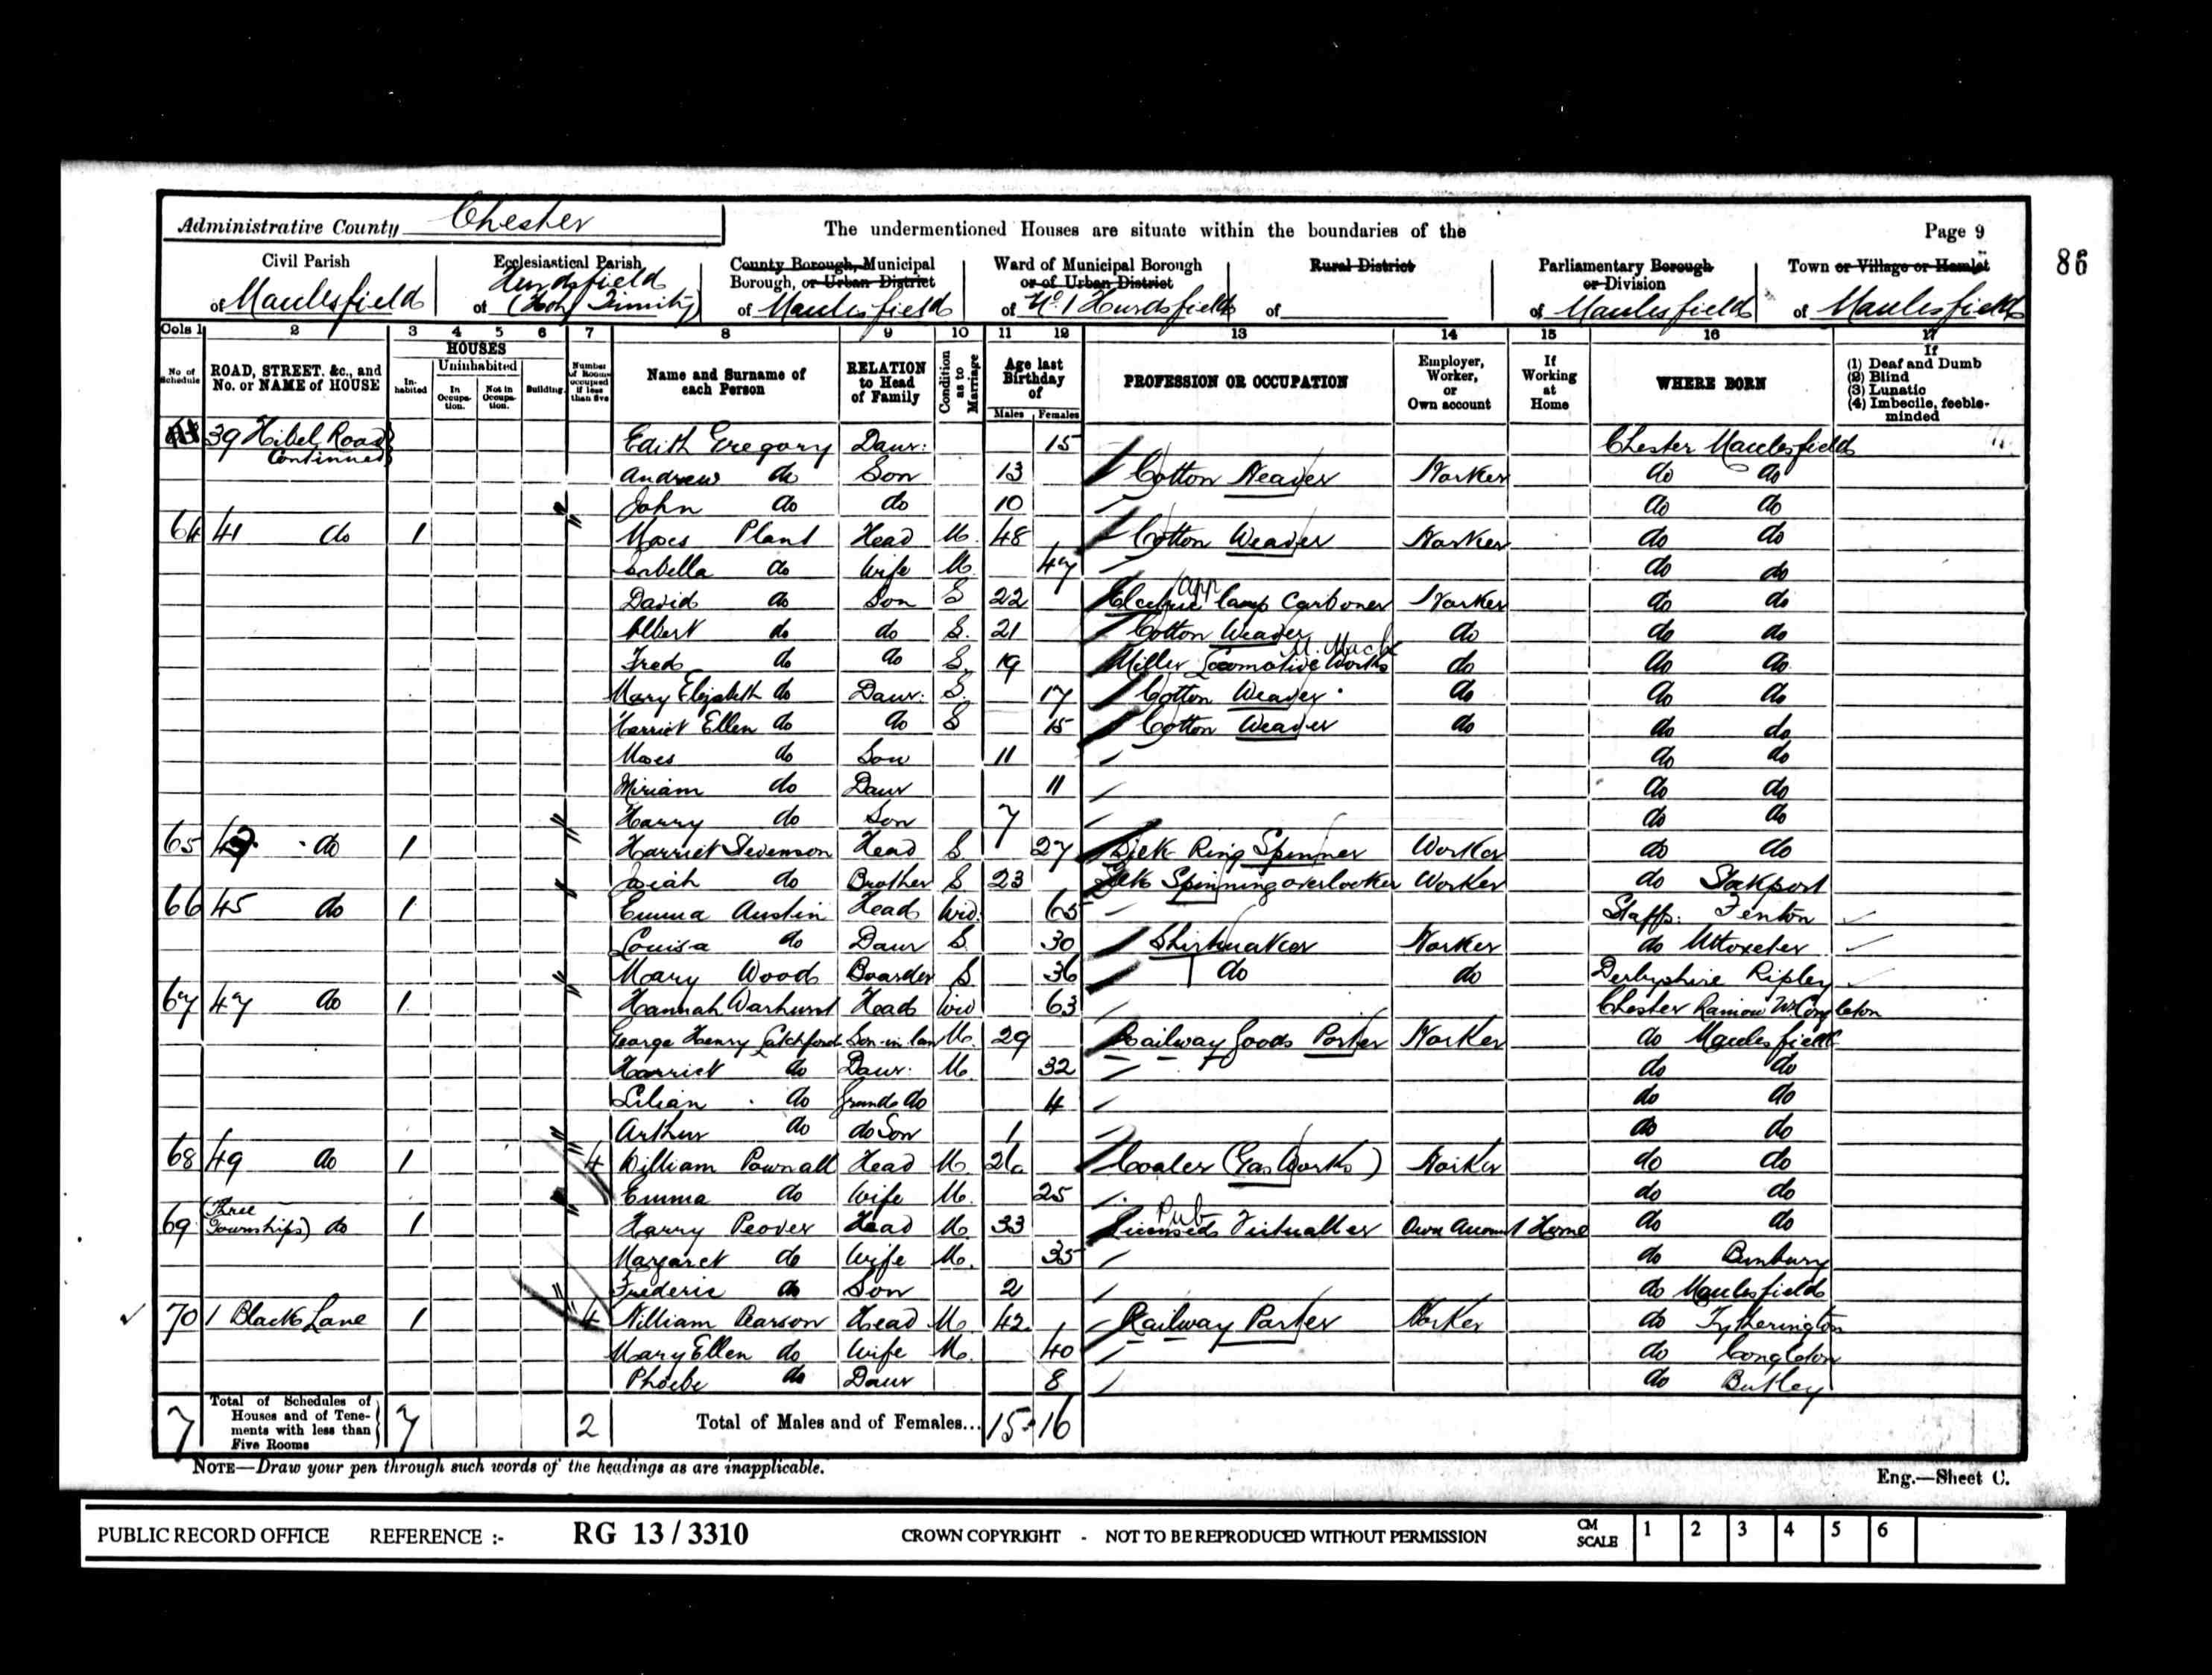 Administrative County Chester
The undermentioned Houses are situate within the boundaries of the
Page 9
86
Civil Parish of Macclesfield
Ecclesiastical Parish of Hurdsfield (Holy Trinity)
County Borough, Municipal Borough, or Urban District of Macclesfield
Ward of Municipal Borough or of Urban District of No. 1 Hurdsfield
Rural District of
Parliamentary Borough or Division of Macclesfield
Town or Village or Hamlet of Macclesfield
Cols 1 2 3 4 5 6 7 8 9 10 11 12 13 14 15 16 17
No of Schedule
ROAD, STREET, &c., and No. or NAME of HOUSE
HOUSES
Inhabited
Uninhabited
In Occupation.
Not in Occupation.
Building
Number of Rooms occupied if less than five
Name and Surname of each Person
RELATION to Head of Family
Condition as to Marriage
Age last Birthday of
Males Females
PROFESSION OR OCCUPATION
Employer, Worker, or Own account
If Working at Home
WHERE BORN
If
(1) Deaf and Dumb
(2) Blind
(3) Lunatic
(4) Imbecile, feeble-minded
39 Hibel Road Continued Edith Gregory Daur: 15 Chester Macclesfield
Andrew do Son 13 Cotton Weaver Worker do do
John do do 10 do do
64 41 do 1 Moses Plant Head M. 48 Cotton Weaver Worker do do
Isabella do Wife M. 47 do do
David do Son S 22 Electric app lamp Carboner Worker do do
Albert do do S. 21 Cotton Weaver do do do
Fred do do S. 19 Miller Locomotive Works do do do
Mary Elizabeth do Daur: S. 17 Cotton Weaver do do do
Harriet Ellen do do S 15 Cotton Weaver do do do
Moses do Son 11 do do
Miriam do Daur 11 do do
Harry do Son 7 do do
65 43 do 1 Harriet Stevenson Head S. 27 Silk Ring Spinner Worker do do
Josiah do Brother S. 23 Silk Spinning overlooker Worker do Stockport
66 45 do 1 Emma Austin Head Wid. 65 Staffs: Fenton
Louisa do Daur S. 30 Shirtmaker Worker do Uttoxeter
Mary Wood Boarder S 36 do do Derbyshire Ripley
67 47 do 1 Hannah Warhurst Head Wid 63 Chester Rainow Nr Congleton
George Henry Latchford Son-in-law M. 29 Railway Goods Porter Worker do Macclesfield
Harriet do Daur: M. 32 do do
Lilian do Grand do 4 do do
Arthur do do Son 1 do do
68 49 do 1 4 William Pownall Head M. 26 Coaler (Gas Works) Worker do do
Emma do Wife M. 25 do do
69 (Three Townships) do 1 Harry Peover Head M. 33 Licensed Victualler Pub Own Account Home do do
Margaret do Wife M. 35 do Bunbury
Frederic do Son 2 do Macclesfield
70 1 Black Lane 1 4 William Pearson Head M. 42 Railway Porter Worker do Tytherington
Mary Ellen do Wife M. 40 do Congleton
Phoebe do Daur 8 do Butley
7 Total of Schedules of Houses and of Tenements with less than Five Rooms 7 2 Total of Males and of Females... 15 16
NOTE—Draw your pen through such words of the headings as are inapplicable.
Eng.—Sheet C.
PUBLIC RECORD OFFICE REFERENCE :- RG 13 / 3310 CROWN COPYRIGHT - NOT TO BE REPRODUCED WITHOUT PERMISSION CM SCALE 1 2 3 4 5 6